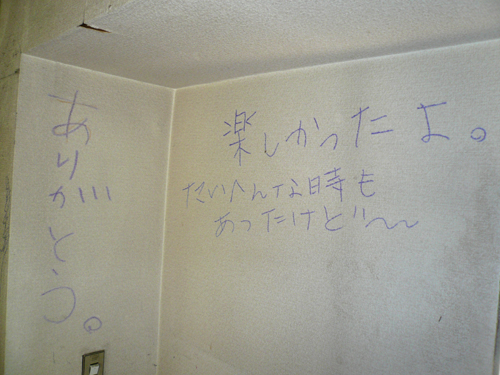 ありがとう。
楽しかったよ。
たいへんな時も
あったけど〜〜